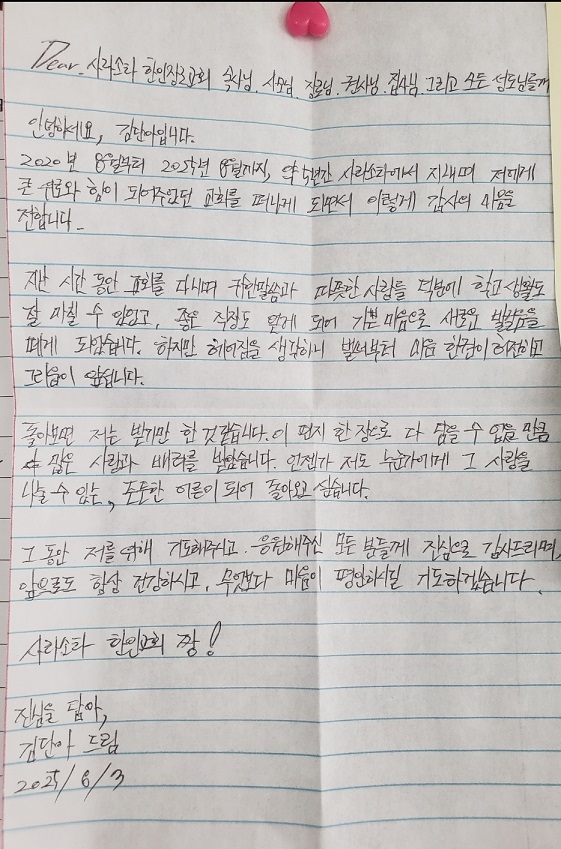 Dear. 사라소타 한인장로교회 목사님, 사모님, 장로님, 권사님, 집사님, 그리고 모든 성도님들께
안녕하세요, 김단아입니다.
2020년 8월부터 2025년 8월까지, 약 5년간 사라소타에서 지내며 저에게
큰 위로와 힘이 되어주었던 교회를 떠나게 되면서 이렇게 감사의 마음을
전합니다.
지난 시간 동안 교회를 다니며 귀한말씀과 따뜻한 사람들 덕분에 학교생활도
잘 마칠 수 있었고, 좋은 직장도 얻게 되어 기쁜 마음으로 새로운 발걸음을
떼게 되었습니다. 하지만 헤어짐을 생각하니 벌써부터 마음 한켠이 허전하고
그리움이 앞섭니다.
돌아보면 저는 받기만 한 것 같습니다. 이 편지 한 장으로 다 담을 수 없을 만큼
많은 사랑과 배려를 받았습니다. 언젠가 저도 누군가에게 그 사랑을
나눌 수 있는, 든든한 어른이 되어 돌아오고 싶습니다.
그 동안 저를 위해 기도해주시고, 응원해주신 모든 분들께 진심으로 감사드리며,
앞으로도 항상 건강하시고, 무엇보다 마음이 평안하시길 기도하겠습니다.
사라소타 한인교회 짱!
진심을 담아,
김단아 드림
2025/8/3